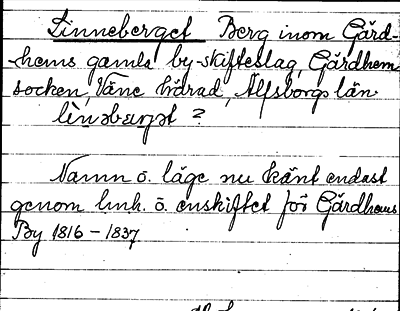 Linneberget Berg inom Gärd-
hems gamla by-skifteslag, Gärdhem
socken, Väne härad, Älfsborgs län
lìnəbærgət ?
Namn o. läge nu känt endast
genom lmh. ö. enskiftet för Gärdhems
By 1816 – 1837